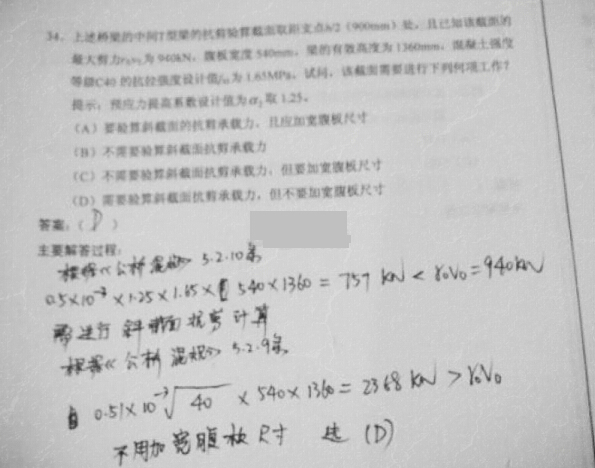 34、上述桥梁的中间T型梁的抗剪验算截面取距支点h/2（900mm）处，且已知该截面的
最大剪力γ₀V₀为940kN，腹板宽度540mm，梁的有效高度为1360mm，混凝土强度
等级C40的抗拉强度设计值f_td为1.65MPa。试问，该截面需要进行下列何项工作？
提示：预应力提高系数设计值为α₂取1.25。
（A）要验算斜截面的抗剪承载力，且应加宽腹板尺寸
（B）不需要验算斜截面抗剪承载力
（C）不需要验算斜截面抗剪承载力，但要加宽腹板尺寸
（D）需要验算斜截面抗剪承载力，但不要加宽腹板尺寸
答案：（D）
主要解答过程：
根据《公桥混规》5.2.10条
0.5×10⁻³×1.25×1.65×540×1360=757 kN<γ₀V₀=940kN
需进行斜截面抗剪计算
根据《公桥混规》5.2.9条
0.51×10⁻³√40×540×1360=2368 kN>γ₀V₀
不用加宽腹板尺寸 选（D）